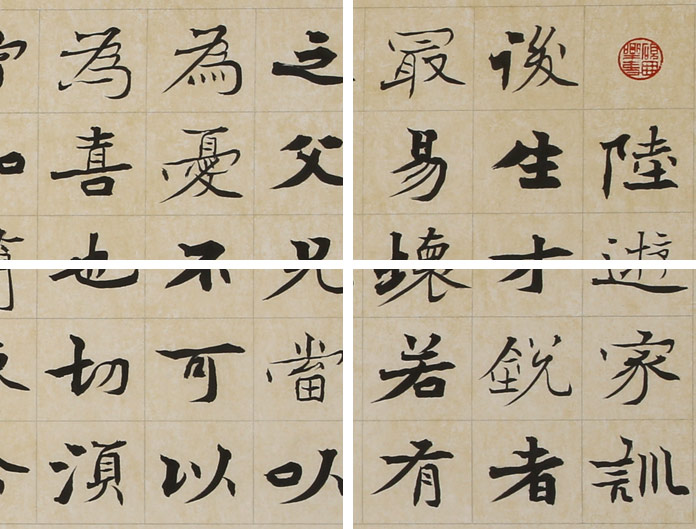 陸遊家訓
後生才銳者
最易壞若有
之父兄當以
為憂不可以
為喜也切湏